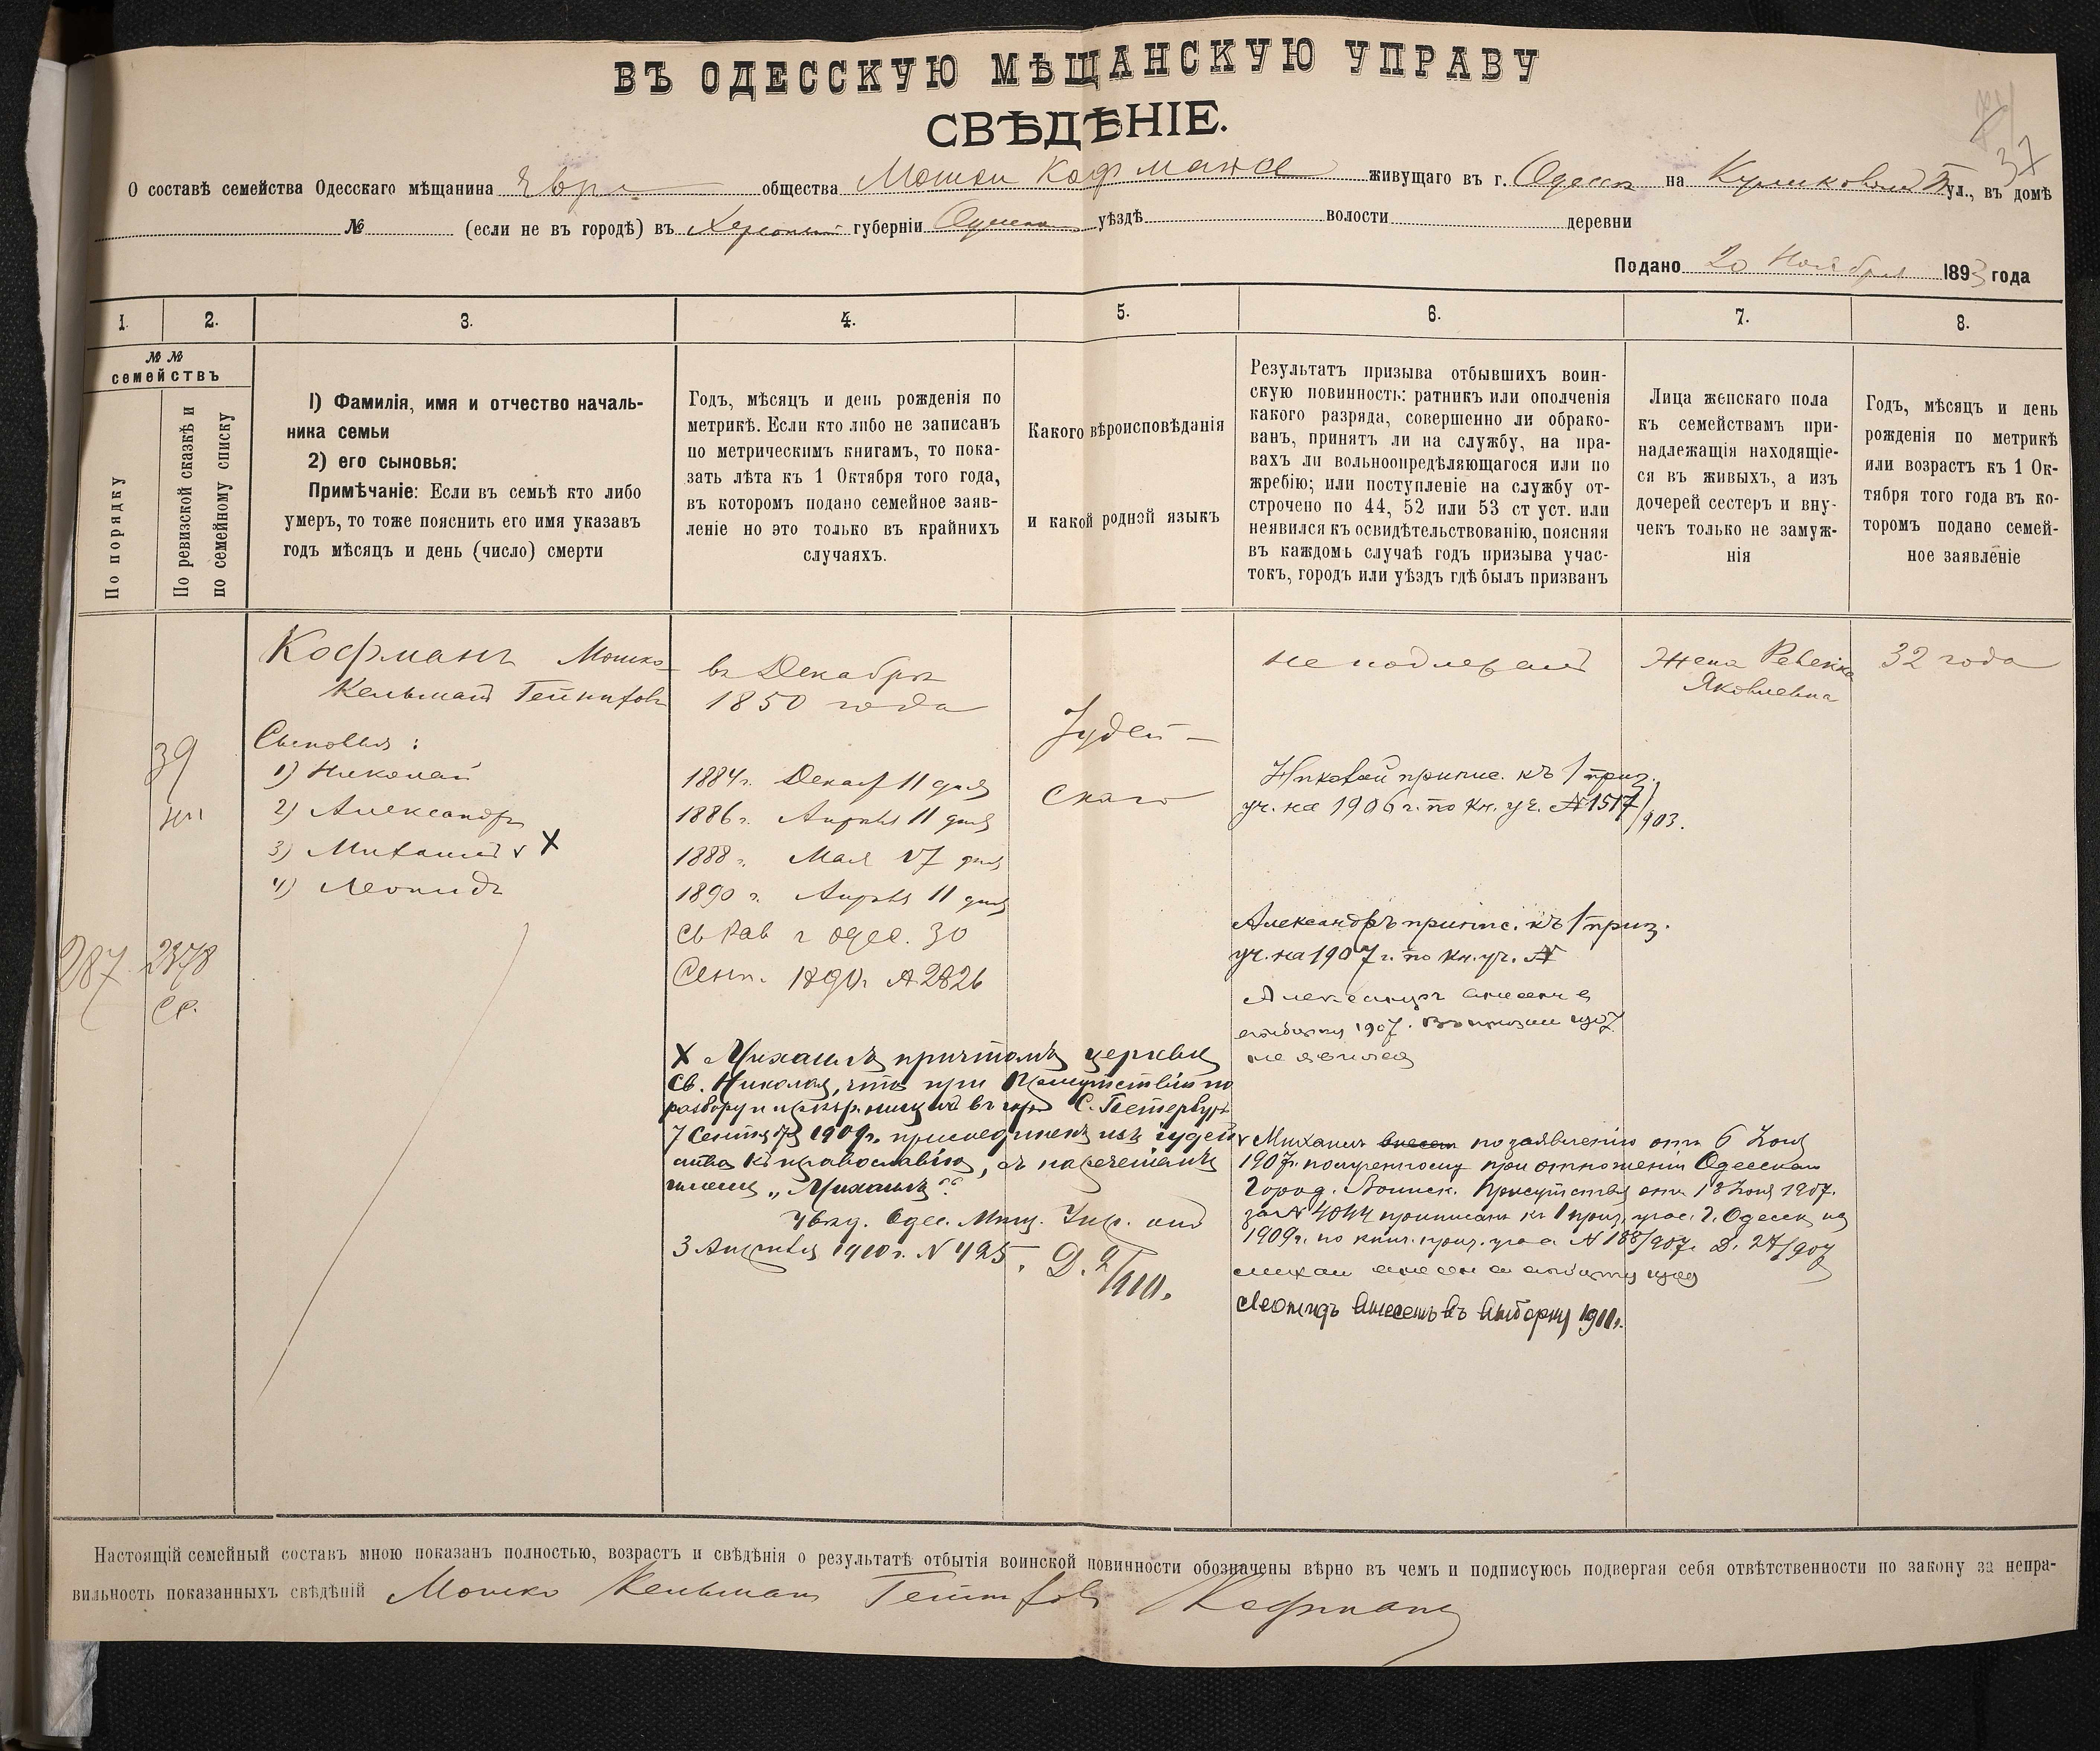 ВЪ ОДЕССКУЮ МѢЩАНСКУЮ УПРАВУ
СВѢДѢНІЕ.
37
О составѣ семейства Одесскаго мѣщанина Евр. общества Мошки Кофмана живущаго въ г. Одессѣ на Куликовомъ п. ул., въ домѣ
№ (если не въ городѣ) въ Херсонской губерніи Одесскомъ уѣздѣ волости деревни
Подано 20 Ноября 1893 года
1. 2. 3. 4. 5. 6. 7. 8.
№№
семействъ
По порядку
По ревизской сказкѣ и
по семейному списку
1) Фамилія, имя и отчество началь-
ника семьи
2) его сыновья:
Примѣчаніе: Если въ семьѣ кто либо
умеръ, то тоже пояснить его имя указавъ
годъ мѣсяцъ и день (число) смерти
Годъ, мѣсяцъ и день рожденія по
метрикѣ. Если кто либо не записанъ
по метрическимъ книгамъ, то пока-
зать лѣта къ 1 Октября того года,
въ которомъ подано семейное заяв-
леніе но это только въ крайнихъ
случаяхъ.
Какого вѣроисповѣданія
и какой родной языкъ
Результатъ призыва отбывшихъ воин-
скую повинность: ратникъ или ополченія
какого разряда, совершенно ли обрако-
ванъ, принятъ ли на службу, на пра-
вахъ ли вольноопредѣляющагося или по
жребію; или поступленіе на службу от-
строчено по 44, 52 или 53 ст уст. или
неявился къ освидѣтельствованію, поясняя
въ каждомъ случаѣ годъ призыва учас-
токъ, городъ или уѣздъ гдѣ былъ призванъ
Лица женскаго пола
къ семействамъ при-
надлежащія находящіе-
ся въ живыхъ, а изъ
дочерей сестеръ и вну-
чекъ только не замуж-
нія
Годъ, мѣсяцъ и день
рожденія по метрикѣ
или возрастъ къ 1 Ок-
тября того года въ ко-
торомъ подано семей-
ное заявленіе
287
39
2378
Кофманъ Мошко-
Кельманъ Гейниховъ
Сыновья:
1) Николай
2) Александръ
3) Михаилъ v X
4) Леонидъ
въ Декабрѣ
1850 года
1884 г. Декаб 11 дня
1886 г. Апрѣля 11 дня
1888 г. Мая 17 дня
1890 г. Апрѣля 11 дня
Св Рав г Одес. 30
Сент. 1890 г. № 2826
Іудей-
скаго
не подлежалъ
Жена Ревекка
Яковлевна
32 года
Николай припис. къ 1 приз.
уч. на 1906 г. по кн. уч. № 1517/903.
Александръ припис. къ 1 приз.
уч. на 1907 г. по кн. уч. №
Александръ внесенъ въ
выборку 1907. Въ призыв 1907
не явился
X Михаилъ причтомъ церкви
Св. Николая, что при
въ гор. С. Петербургѣ
7 Сентября 1909 г. присоединенъ изъ іудей
ства къ православію, съ нареченіемъ
имени „Михаилъ“.
Увѣд. Одес. Мѣщ. Упр. отъ
3 Августа 1910 г. № 425. Д. 2/1910.
v Михаилъ внесен по заявленію отъ 6 Іюня
1907 г. полученному при отношеніи Одесскаго
Город. Воинск. Присутствія отъ 18 Іюня 1907 г.
за № 4044 приписанъ къ 1 приз. учас. г. Одессы на
1909 г. по книг. приз. уча № 188/907. Д. 27/907
Леонидъ внесенъ въ выборку 1911 г.
Настоящій семейный составъ мною показанъ полностью, возрастъ и свѣдѣнія о результатѣ отбытія воинской повинности обозначены вѣрно въ чемъ и подписуюсь подвергая себя отвѣтственности по закону за непра-
вильность показанныхъ свѣдѣній Мошко Кельманъ Гейниховъ Кофманъ